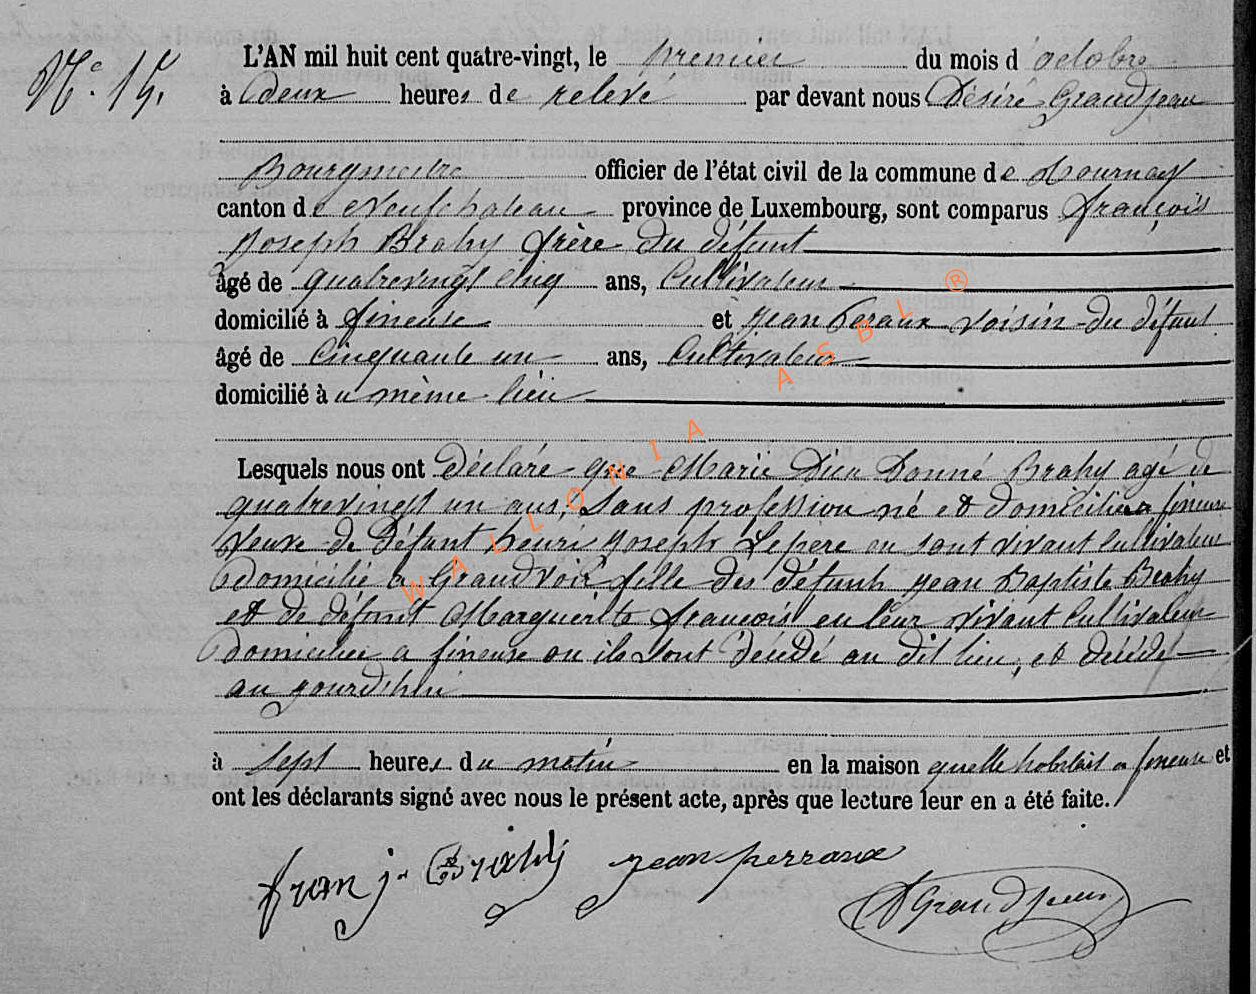 N° 15,
L'AN mil huit cent quatre-vingt, le premier du mois d'octobre
à deux heures de relevé par devant nous Désiré Grandjean
Bourgmestre officier de l'état civil de la commune de Tournay
canton de Neufchateau province de Luxembourg, sont comparus françois
Joseph Brahy frère du défunt
âgé de quatrevingt cinq ans, Cultivateur
domicilié à fineuse et jean Peraux voisin du défunt
âgé de Cinquante un ans, Cultivateur
domicilié à u même lieu
Lesquels nous ont déclaré que Marie Dieu Donné Brahy agé de
quatrevingt un ans, Sans profession né et domiciliée a fineuse
veuve de défunt henri Joseph Lepere en sont vivant cultivateur
domicilié a Grandvoir fille des défunts jean Baptiste Brahy
et de défunt Marguerite francois en leur vivant Cultivateur
domiciliée a fineuse ou ils sont décédé au dit lieu, et décédé
au jourd'hui
à Sept heures du matin en la maison quelle habitait a fineuse et
ont les déclarants signé avec nous le présent acte, après que lecture leur en a été faite.
fran j. Brahy jean perraux
D Grandjean
WALLONIA ASBL ®